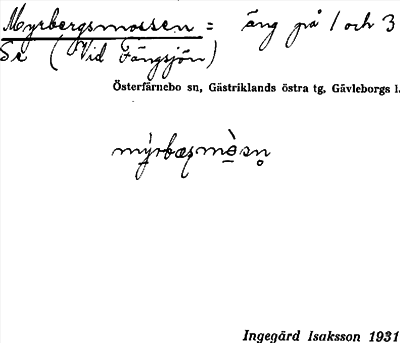 Myrbergsmossen = äng på 1 och 3
Se (Vid Fängsjön)
Österfärnebo sn, Gästriklands östra tg, Gävleborgs l.
Ingegärd Isaksson 1931